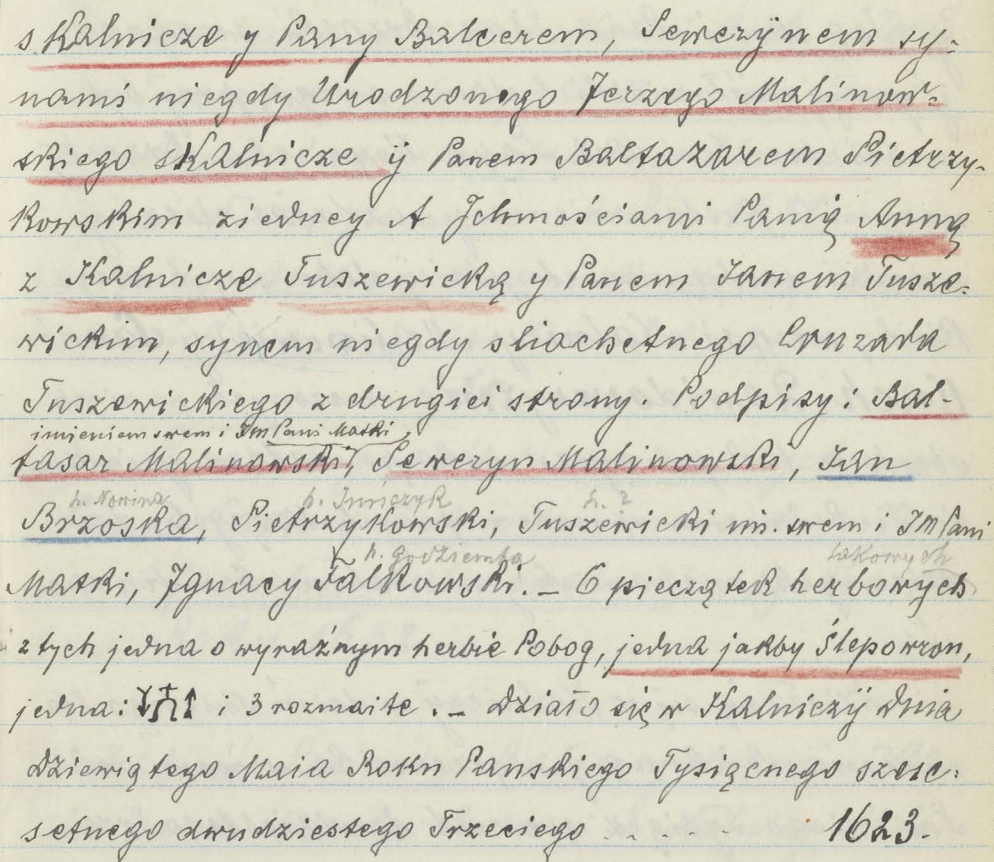 s Kalnicze y Pany Balcerem, Sewerÿnem sy=
nami niegdy Urodzonego Jerzego Malinow=
skiego s Kalnicze ÿ Panem Baltazarem Pietrzy-
kowskim ziedney A Jchmościami Panią Anną
z Kalnicze Tuszewicką y Panem Janem Tusze=
wickim, synem niegdy sliachetnego Conrada
Tuszewickiego z drugiei strony. Podpisy: Bal-
imieniem swem i Jm Pani Matki
tasar Malinowski, Seweryn Malinowski, Jan
h. Nowina h. Junczyk h. ?
Brzoska, Pietrzykowski, Tuszewicki im. swem i JmPani
h. Godziemba lakowych
Matki, Jgnacy Falkowski. _ 6 pieczątek herbowych
z tych jedna o wyraźnym herbie Pobog, jedna jakby Ślepowron,
jedna: i 3 rozmaite. _ Działo się w Kalniczÿ Dnia
Dziewiątego Maia Roku Panskiego Tysiącnego szesc=
setnego dwudziestego Trzeciego - - - - - 1623.